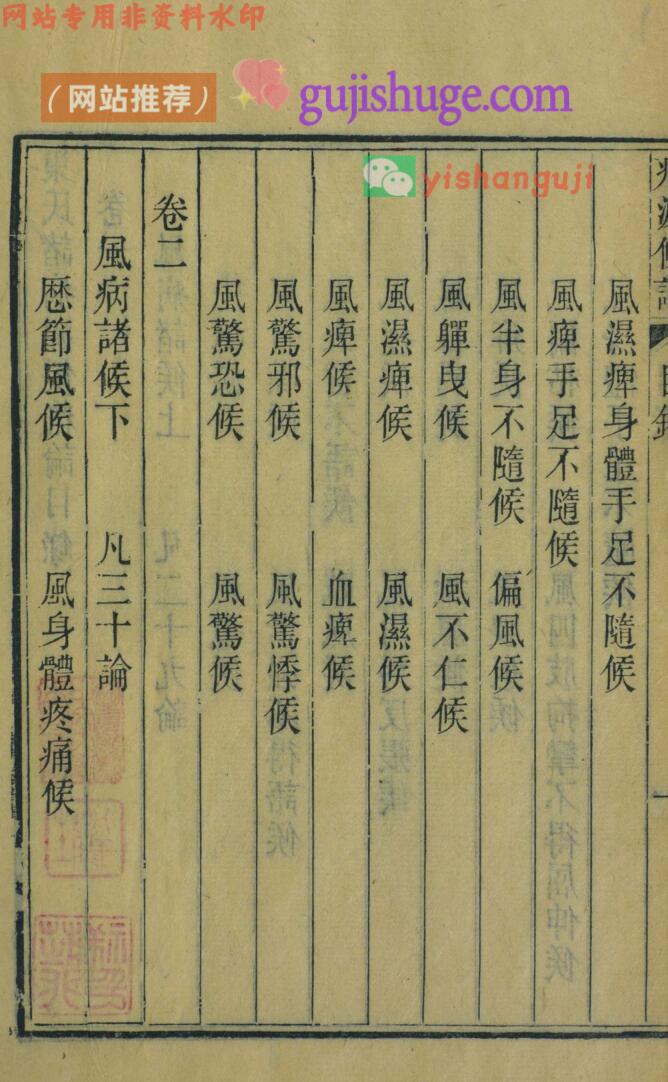 网站专用非资料水印
（网站推荐） gujishuge.com
yishanguji
風濕痺身體手足不隨候
風痺手足不隨候
風半身不隨候 偏風候
風軃曳候 風不仁候
風濕痺候 風濕候
風痺候 血痺候
風驚邪候 風驚悸候
風驚恐候 風驚候
卷二
風病諸候下 凡三十論
歷節風候 風身體疼痛候